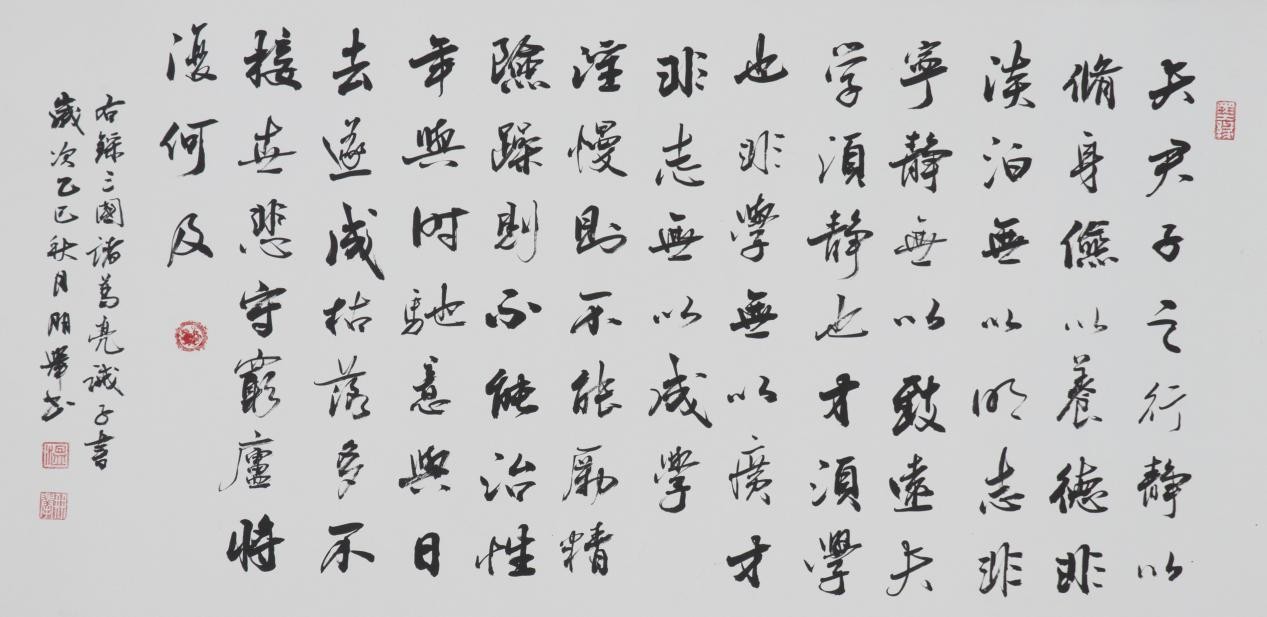 夫君子之行静以
脩身儉以養德非
淡泊無以明志非
寧静無以致遠夫
学須静也才須學
也非學無以廣才
非志無以成學
淫慢則不能勵精
險躁則不能治性
年與时馳意與日
去遂成枯落多不
接世悲守窮廬將
復何及
右錄三國諸葛亮誡子書
歲次乙巳秋月朋舉书